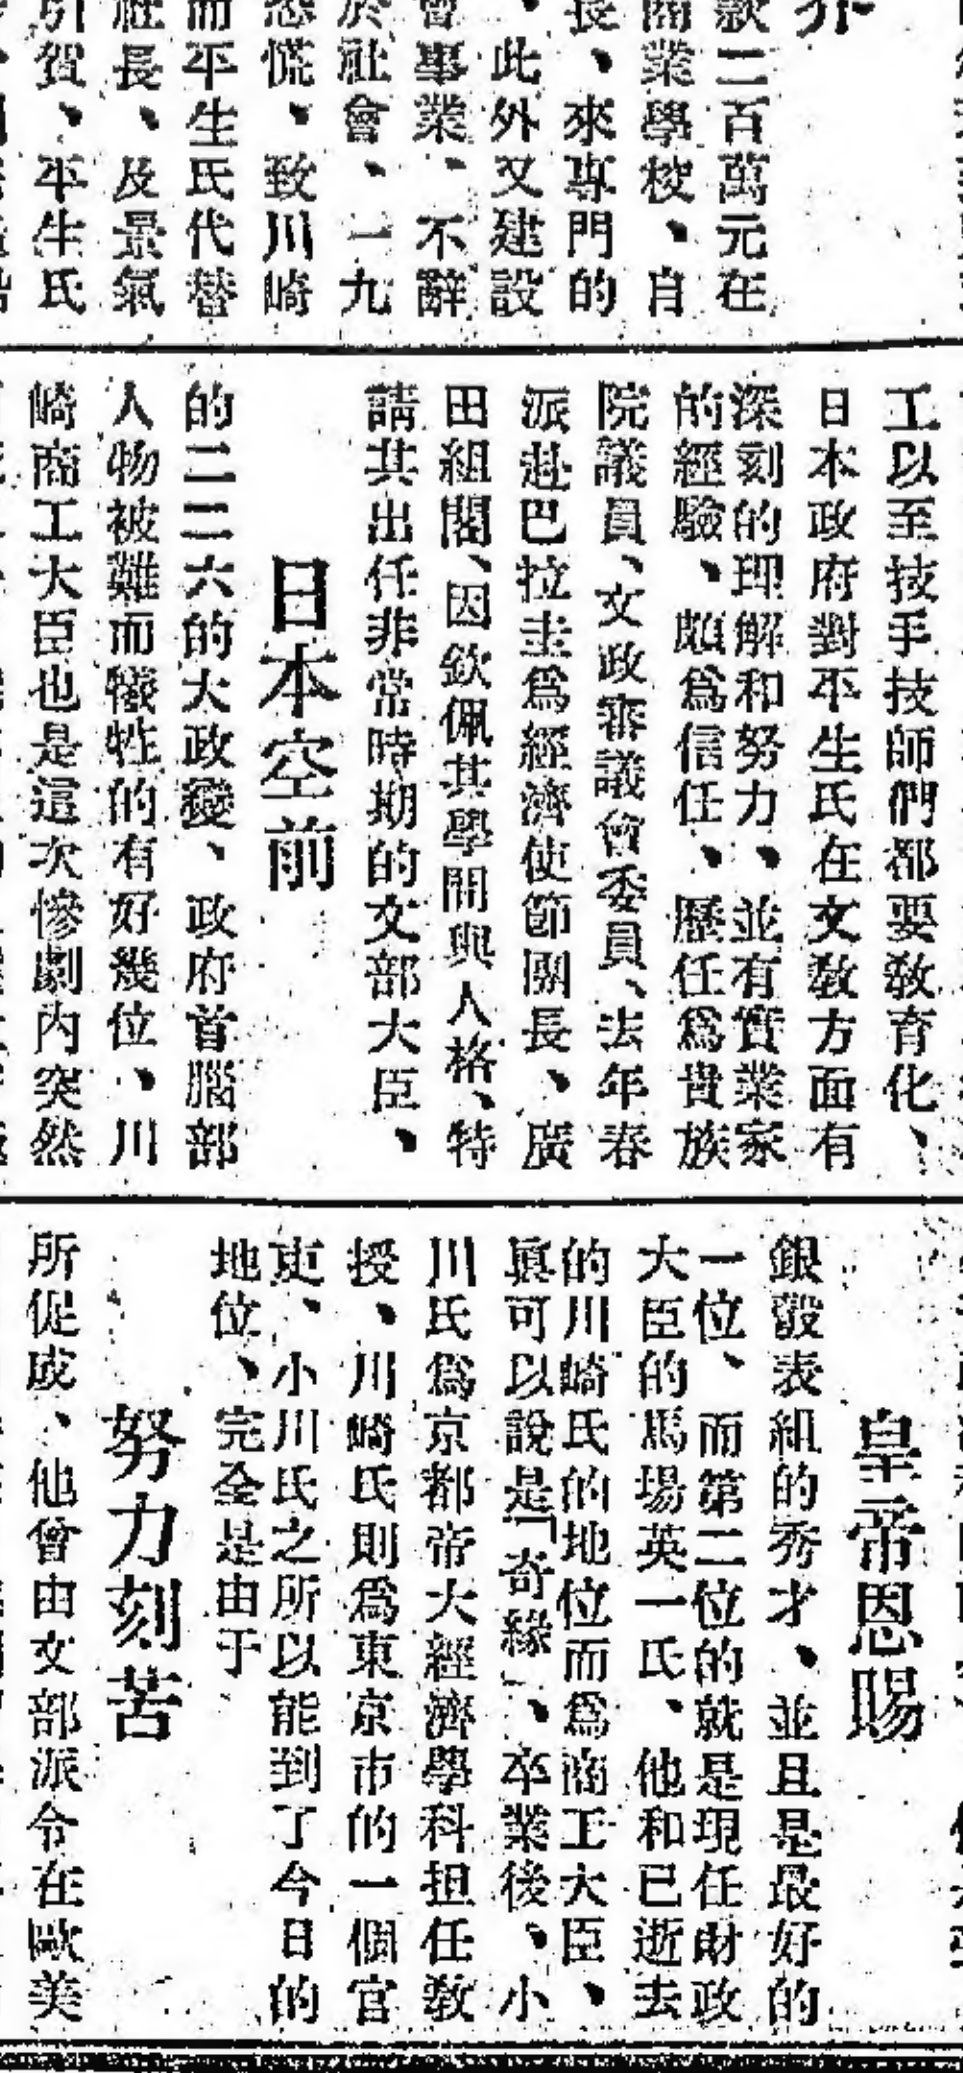 介
款二百萬元在
商業學校、肖
長、來專門的
、此外又建設
會事業、不辭
於社會、一九
恐慌、致川崎
而平生氏代替
社長、及景氣
引賀、平生氏
工以至技手技師們都要教育化、
日本政府對平生氏在文教方面有
深刻的理解和努力、並有實業家
的經驗、頗爲信任、歷任爲貴族
院議員、文政審議會委員、去年春
派赴巴拉圭爲經濟使節團長、廣
田組閣、因欽佩其學問與人格、特
請其出任非常時期的文部大臣、
日本空前
的二二六的大政變、政府首腦部
人物被難而犧牲的有好幾位、川
崎商工大臣也是這次慘劇內突然
皇帝恩賜
銀設表組的秀才、並且是最好的
一位、而第二位的就是現任財政
大臣的馬場英一氏、他和已逝去
的川崎氏的地位而爲商工大臣、
眞可以說是「奇緣」、卒業後、小
川氏爲京都帝大經濟學科担任教
授、川崎氏則爲東京市的一個官
吏、小川氏之所以能到了今日的
地位、完全是由于
努力刻苦
所促成、他曾由文部派令在歐美